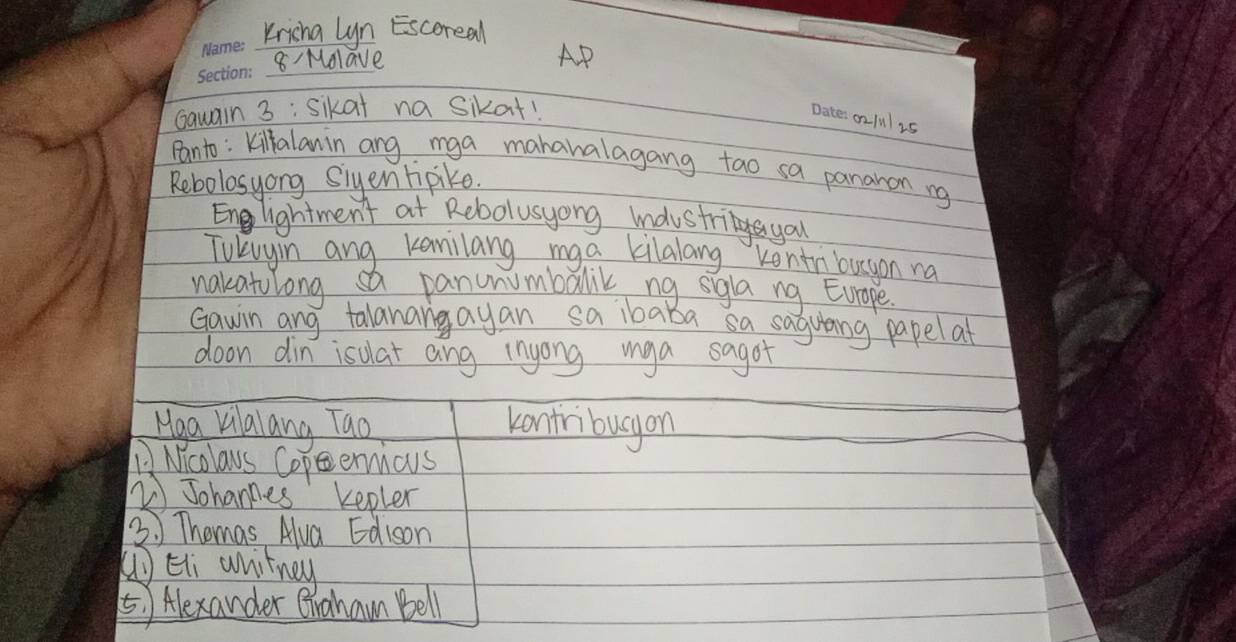 Name: Kricha Lyn Escoreal
Section: 8-Molave
AP
Date: 02/11/25
Gawain 3: Sikat na Sikat!
Panto: Kilalanin ang mga mahahalagang tao sa panahon ng
Rebolosyong Siyentipiko.
Englightment at Rebolusyong Industriyayal
Tukuyin ang kanilang mga kilalang kontribusyon na
nakatulong sa panunumbalik ng sigla ng Europe.
Gawin ang talanangayan sa ibaba sa sagutang papel at
doon din isulat ang inyong mga sagot
Mga Kilalang Tao
Kontribusyon
1.) Nicolaus Copernicus
2.) Johannes Kepler
3.) Thomas Alva Edison
4.) Eli Whitney
5.) Alexander Graham Bell